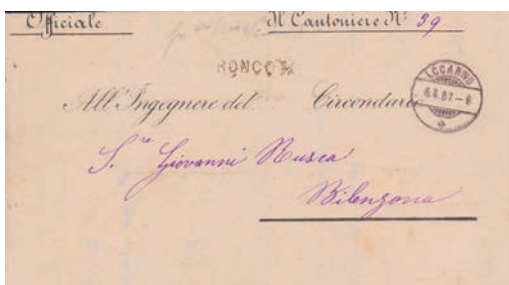 Officiale
Il Cantoniere Nº 39
RONCO
LOCARNO
6.4.87-6
All'Ingegnere del Circondario
S.re Giovanni Rusca
Bilenzona